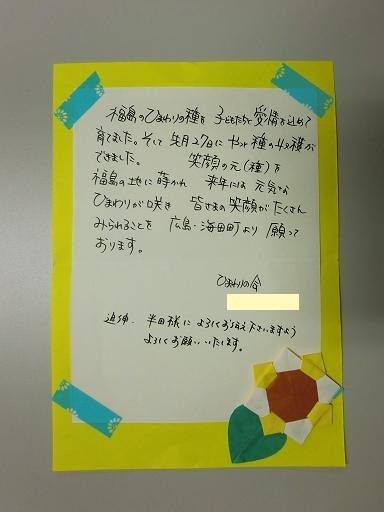 福島のひまわりの種を 子どもたちと 愛情を込めて
育てました。そして 先月27日に やっと 種の収穫が
できました。 笑顔の元(種)を
福島の地に蒔かれ 来年には 元気な
ひまわりが咲き 皆さまの笑顔が たくさん
みられることを 広島・海田町より 願って
おります。
ひまわりの会
追伸. 半田様に よろしくお伝えくださいますよう
よろしくお願いいたします。